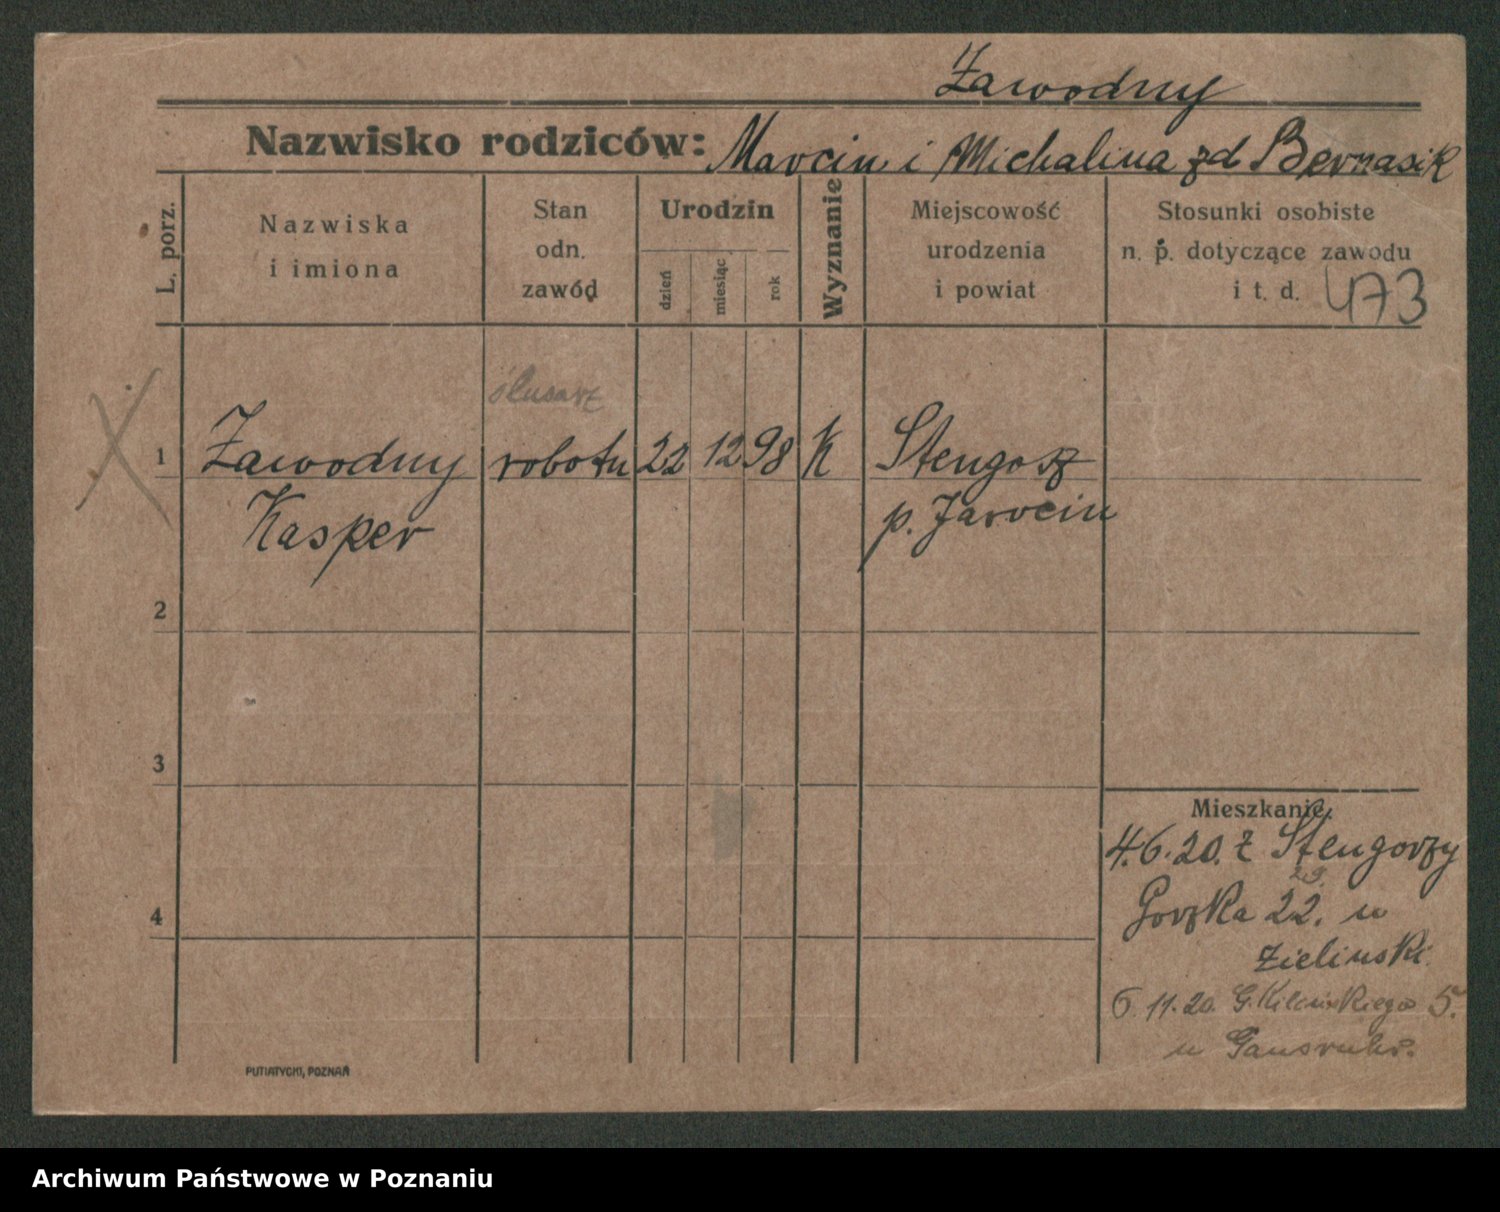 Zawodny
Nazwisko rodziców: Marcin i Michalina zd Bernasik
L. porz.
Nazwiska
i imiona
Stan
odn.
zawód
Urodzin
dzień
miesiąc
rok
Wyznanie
Miejscowość
urodzenia
i powiat
Stosunki osobiste
n. p. dotyczące zawodu
i t. d. 473
ślusarz
1 Zawodny robotn 22 12 98 K Stengosz
Kasper p. Jarocin
2
3
4
Mieszkanie.
4.6.20. z Stengorzy
29.
Gorzka 22. u
Zielinski.
6.11.20. G. Kilinskiego 5.
u
PUTIATYCKI, POZNAŃ
Archiwum Państwowe w Poznaniu